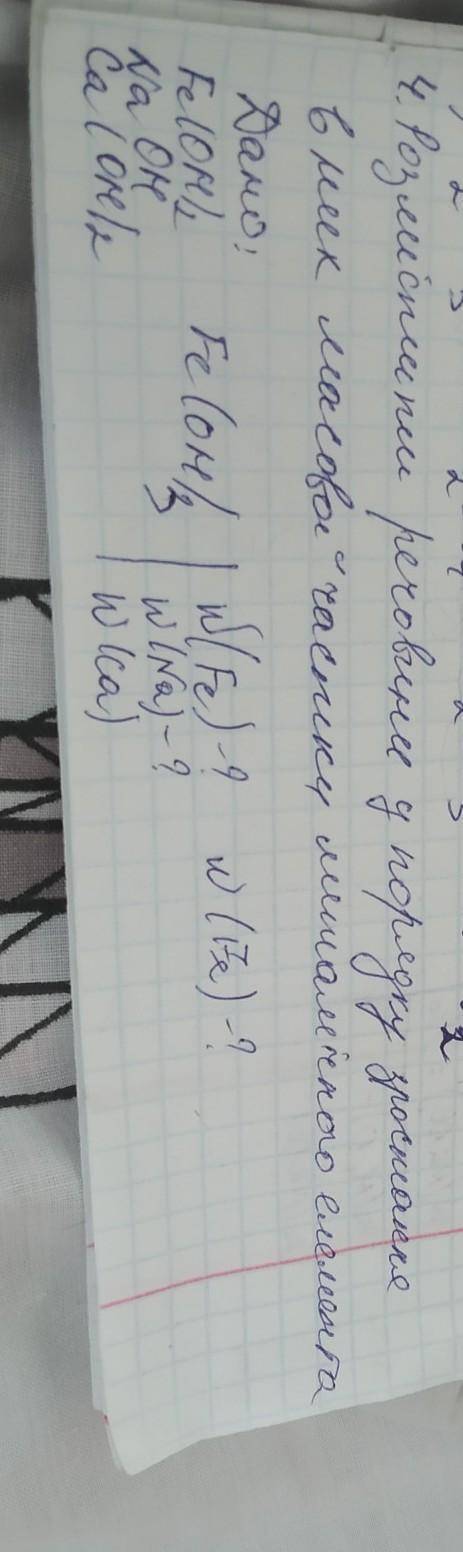 4. Розмістити речовини у порядку зростання
в них масової частки металічного елемента
Дано:
Fe(OH)2 Fe(OH)3 | W(Fe)-? W(Fe)-?
NaOH W(Na)-?
Ca(OH)2 W(Ca)